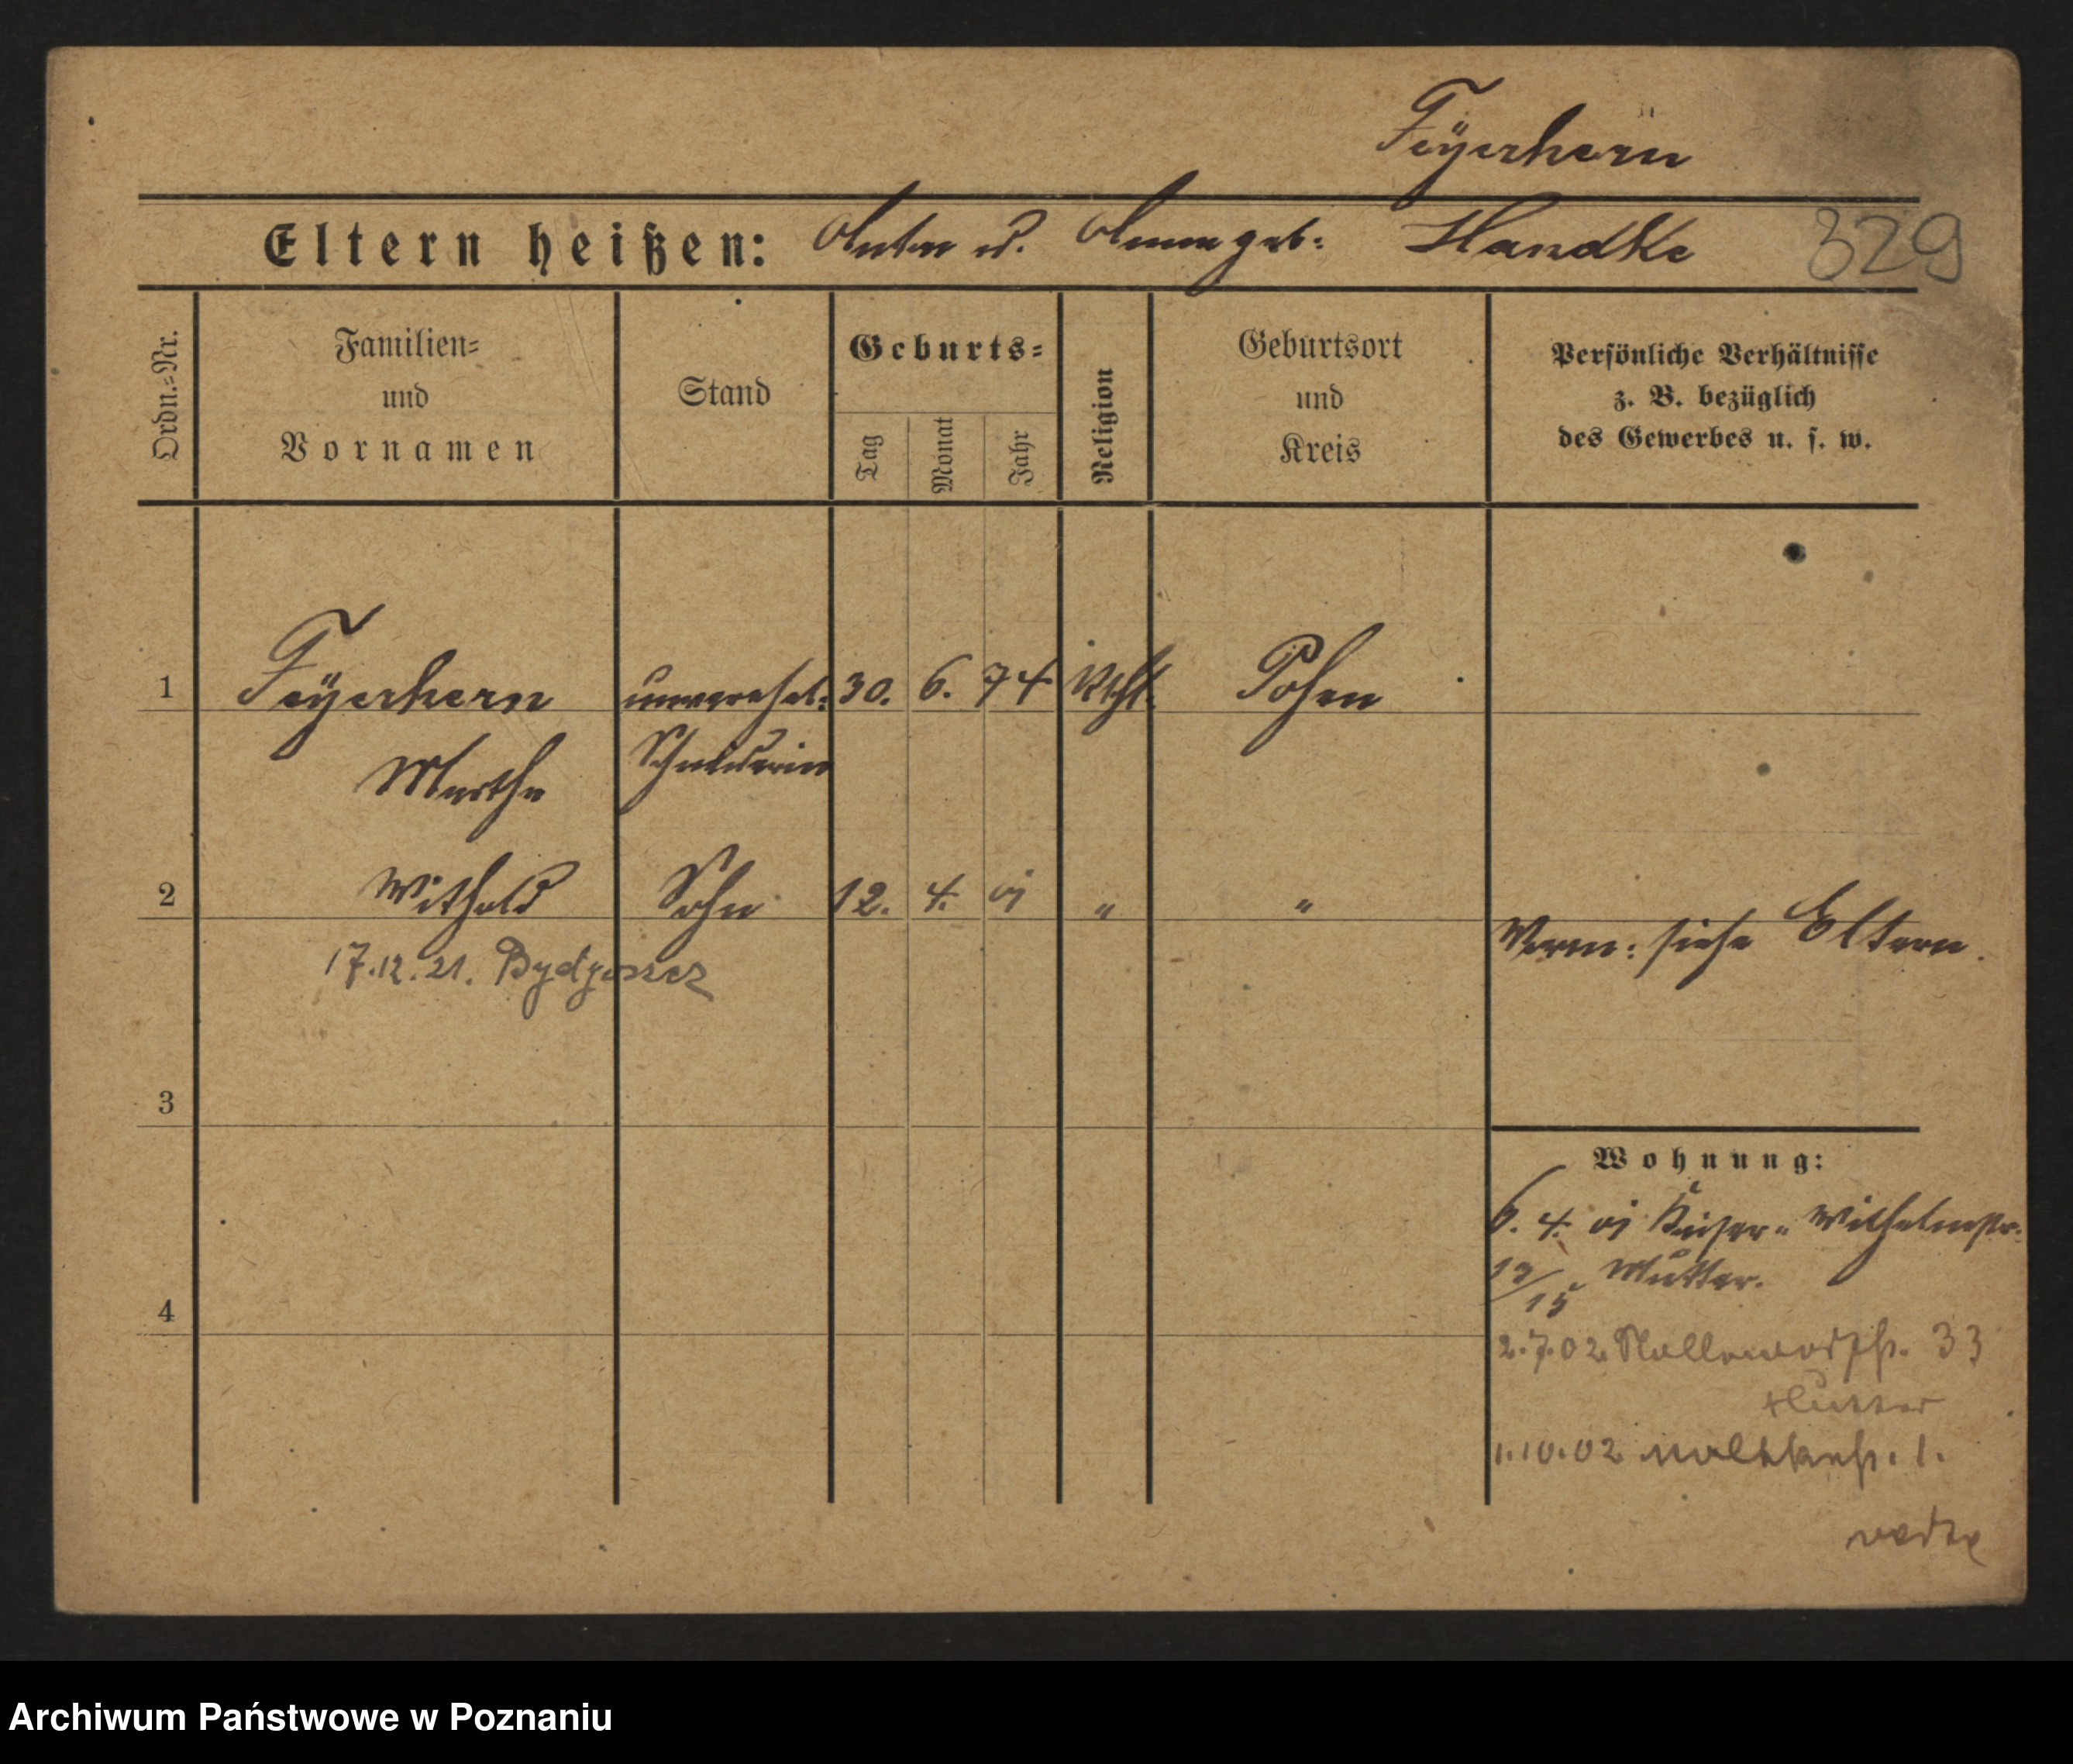 Feÿerhern
Eltern heißen: Anton u. Anna geb: Handke 329
Ordn.=Nr. Familien= und Vornamen Stand Geburts= Tag Monat Jahr Religion Geburtsort und Kreis Persönliche Verhältnisse z. B. bezüglich des Gewerbes u. s. w.
1 Feÿerhern unverehel: 30. 6. 74 kth. Posen
Martha Schneiderin
2 Withold Sohn 12. 4. 01 " "
Verm: siehe Eltern.
17.12.21. Bydgoszcz
3
Wohnung:
6. 4. 01 Kaiser-Wilhelmstr.
13/15 Mutter.
4
2.7.02 33
Mutter
1.10.02 Moltkestr. 1.
verte
Archiwum Państwowe w Poznaniu